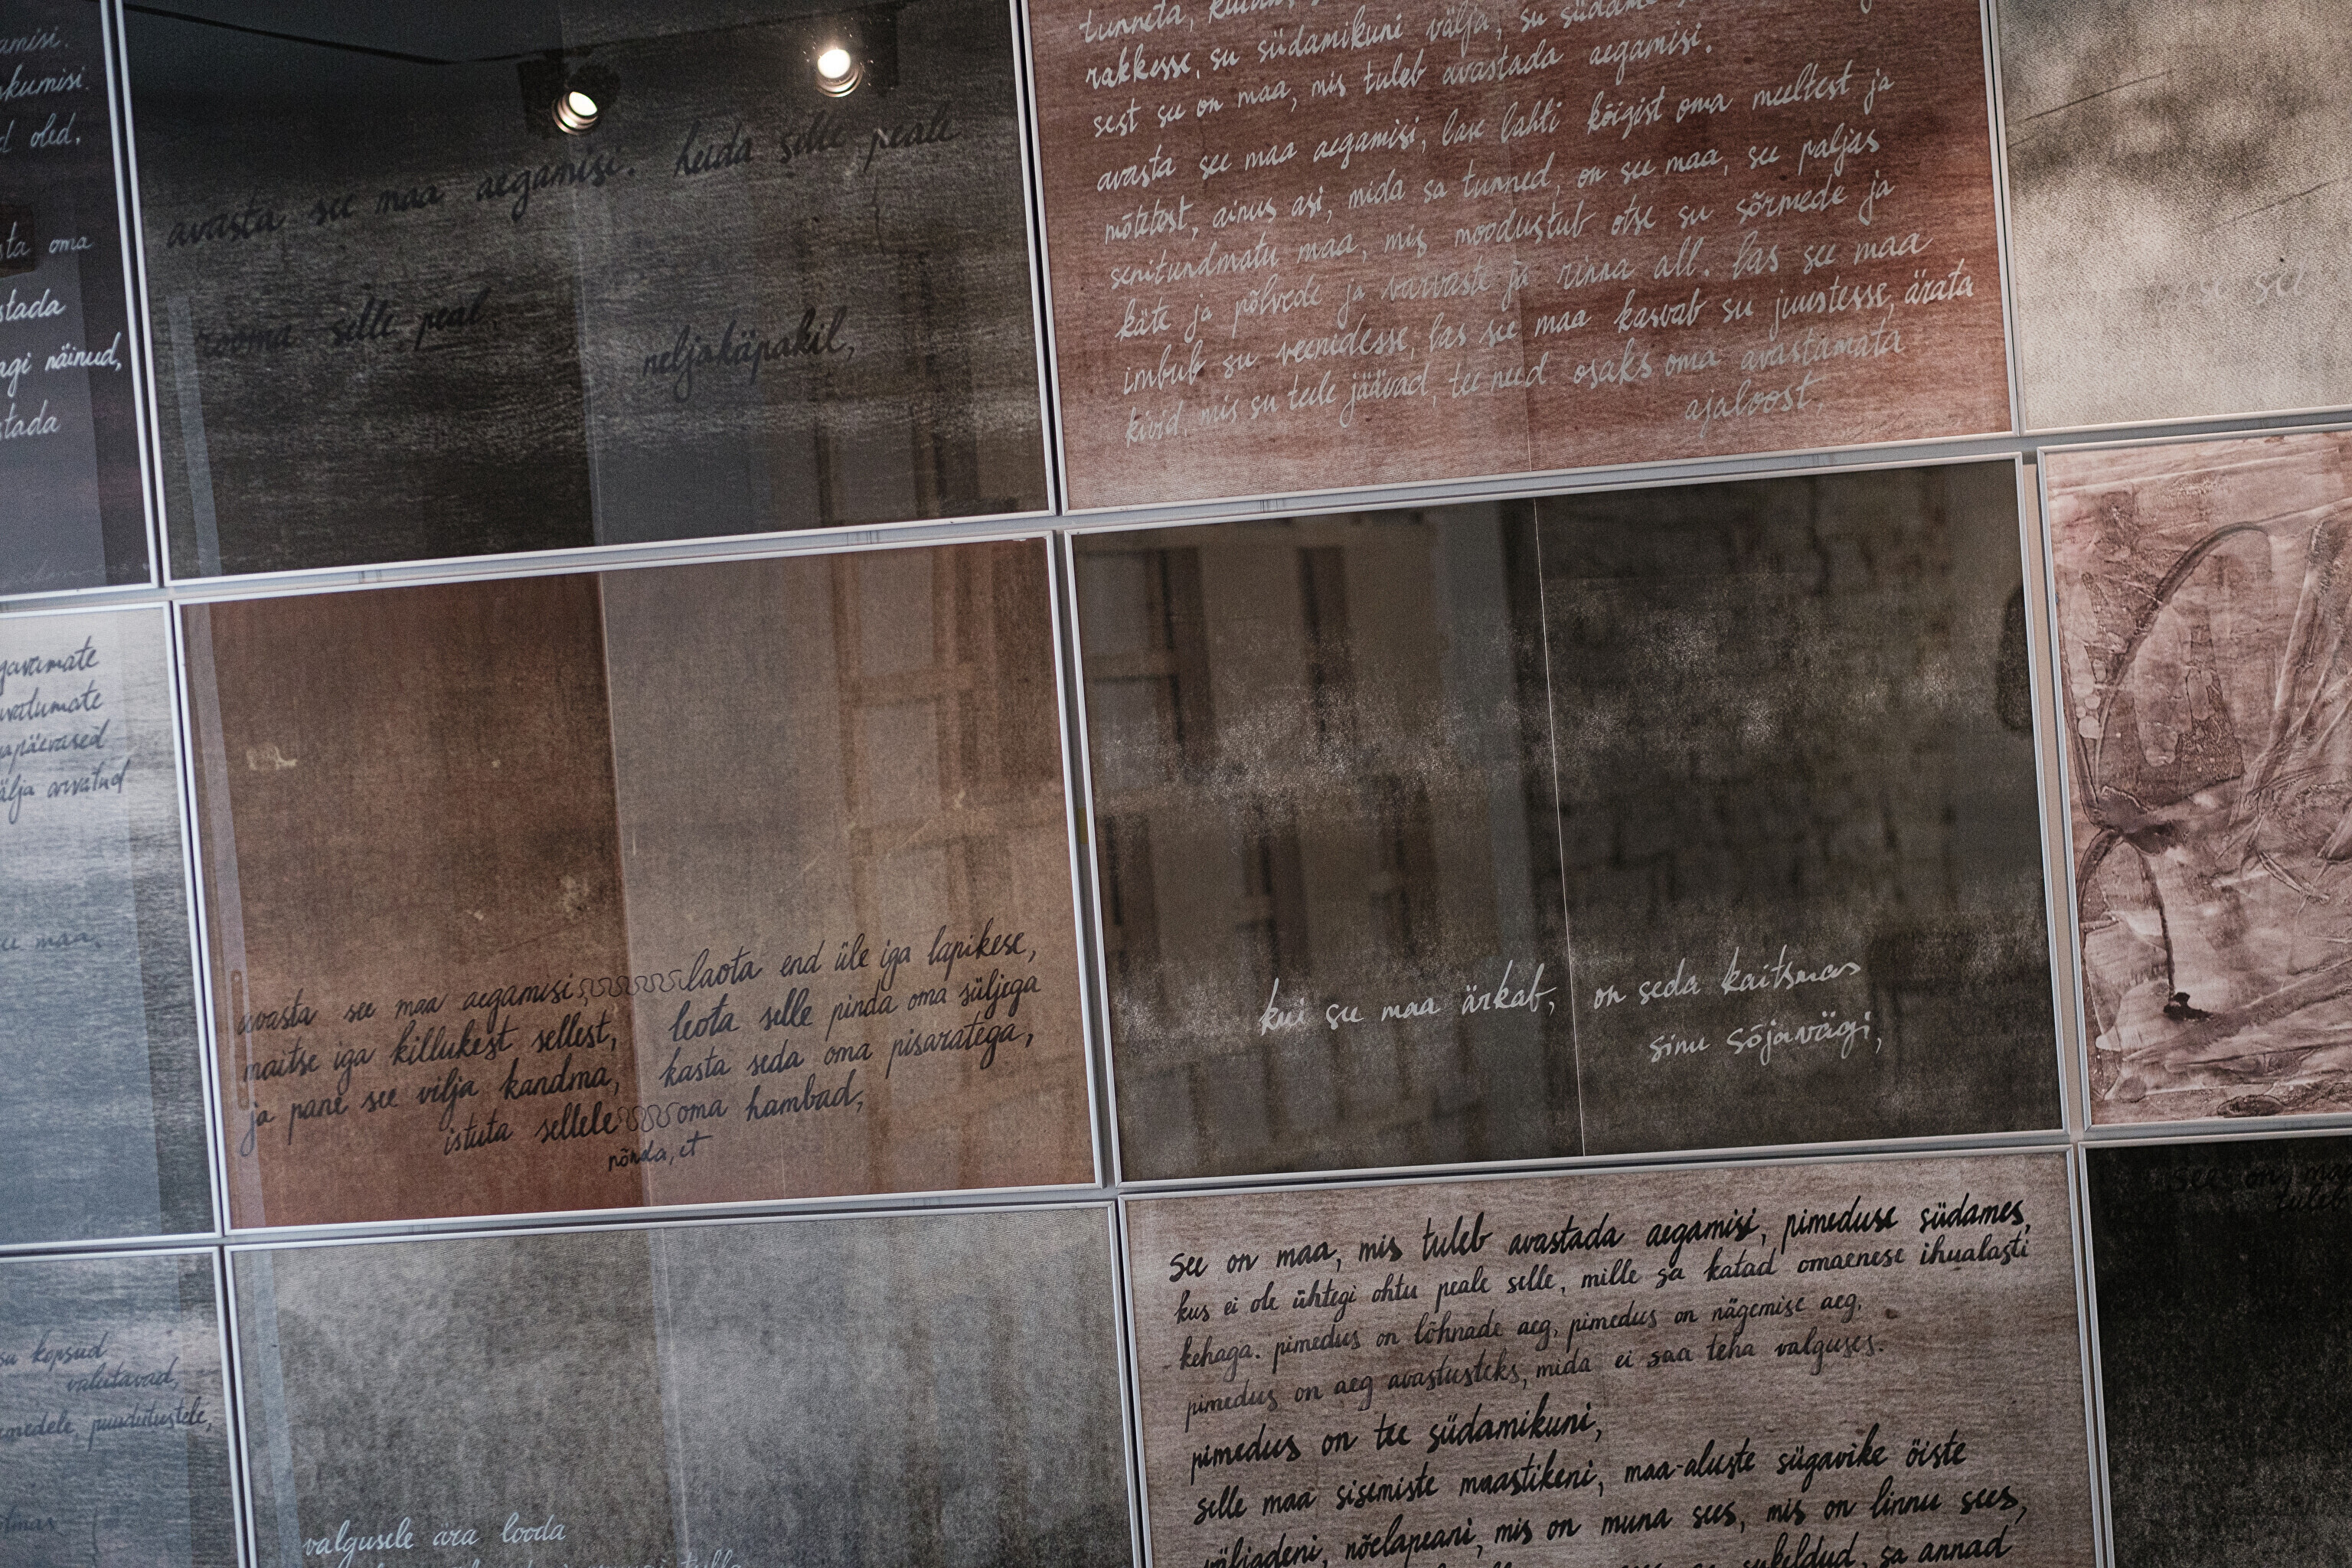 amisi.
kumisi.
d oled.
sta oma
stada
agi näinud,
stada
avasta see maa aegamisi. heida selle peale
rooma selle peal. neljakäpakil,
tunneta,
rakkesse, su südamikuni välja, su südame
sest see on maa, mis tuleb avastada aegamisi.
avasta see maa aegamisi, lase lahti kõigist oma meeltest ja
mõtetest, ainus asi, mida sa tunned, on see maa, see paljas
senitundmatu maa, mis moodustub otse su sõrmede ja
käte ja põlvede ja varvaste ja rinna all. las see maa
imbub su veenidesse, las see maa kasvab su juustesse, ärata
kivid, mis su teele jäävad, tee need osaks oma avastamata
ajaloost,
gavamate
apäevased
älja arvatud
maa.
avasta see maa aegamisi, laota end üle iga lapikese,
maitse iga killukest sellest, leota selle pinda oma süljega
ja pane see vilja kandma, kasta seda oma pisaratega,
istuta sellele oma hambad,
põnda, et
kui see maa ärkab, on seda kaitsmas
sinu sõjavägi,
su kopsud
valutavad,
puudutustele,
valgusele ära looda
see on maa, mis tuleb avastada aegamisi, pimeduse südames,
kus ei ole ühtegi ohtu peale selle, mille sa katad omaenese ihualasti
kehaga. pimedus on lõhnade aeg, pimedus on nägemise aeg,
pimedus on aeg avastusteks, mida ei saa teha valguses.
pimedus on tee südamikuni,
selle maa sisemiste maastikeni, maa-aluste sügavike öiste
väljadeni, nõelapeani, mis on muna sees, mis on linnu sees,
sukeldud, sa annad
see on, ma
tuleb